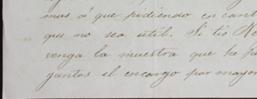 mas á que pidiendo en cant
que no sea útil. Si tio
venga la muestra que he
guntas el encargo por mayor